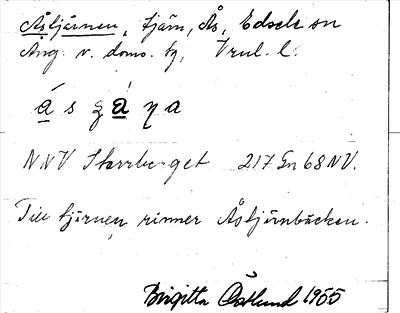 Åstjärnen, tjärn, Ås, Edsele sn
Ång. v. doms. bg,
á s ʒ a̱ ɳ a
NNV Storrberget 217 Gn 68 NV.
Till tjärnen rinner Åstjärnbäcken.
Birgitta Östlund 1955